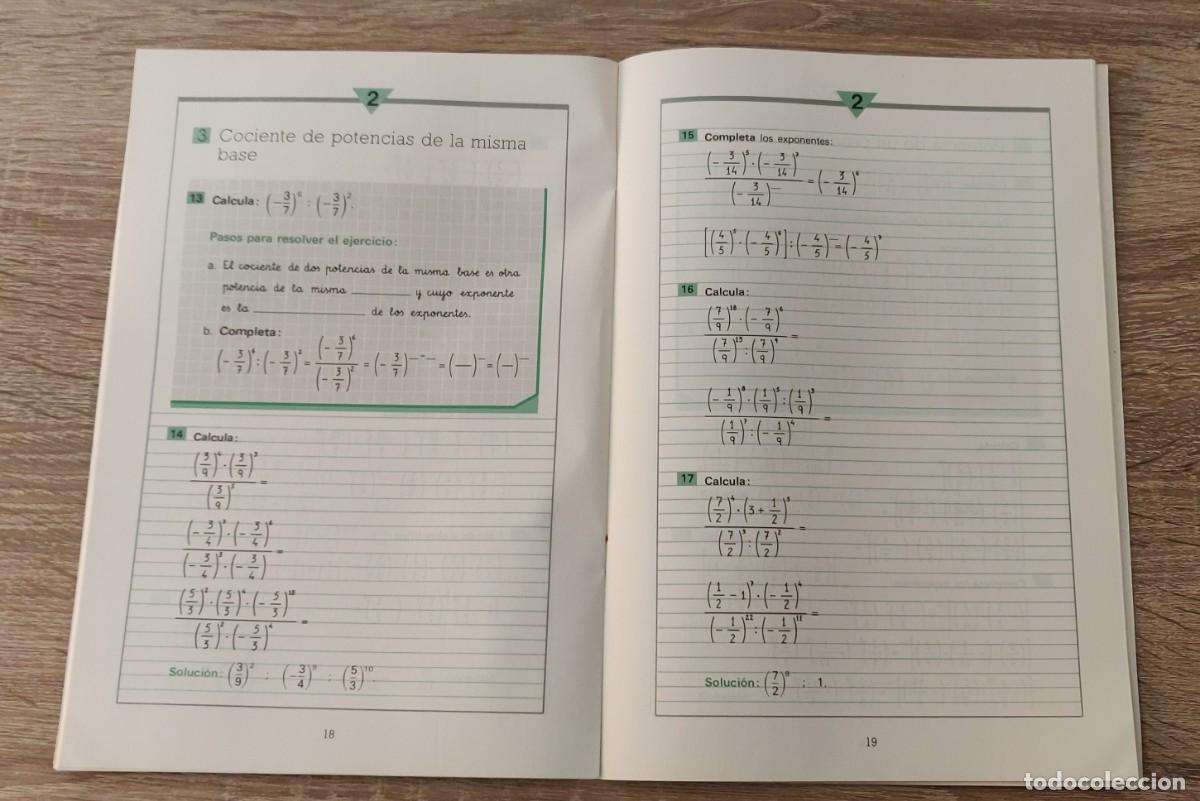 2
3 Cociente de potencias de la misma
base
13 Calcula: (-3/7)^6 : (-3/7)^2.
Pasos para resolver el ejercicio:
a. El cociente de dos potencias de la misma base es otra
potencia de la misma ________ y cuyo exponente
es la ________ de los exponentes.
b. Completa:
(-3/7)^6 : (-3/7)^2 = (-3/7)^6 / (-3/7)^2 = (-3/7)^(— - —) = (—)^— = (—)^—
14 Calcula:
(3/9)^4 · (3/9)^3 / (3/9)^5 =
(-3/4) · (-3/4)^6 / (-3/4)^3 · (-3/4) =
(5/3)^2 · (5/3)^4 · (-5/3)^10 / (5/3)^2 · (-5/3)^4 =
Solución: (3/9)^2 ; (-3/4)^9 ; (5/3)^10.
18
2
15 Completa los exponentes:
(-3/14)^5 · (-3/14) / (-3/14)^— = (-3/14)
[(4/5) · (-4/5)] : (-4/5)^— = (-4/5)
16 Calcula:
(7/9)^18 · (-7/9)^6 / (7/9)^15 : (7/9) =
(-1/9)^8 · (1/9)^5 : (1/9)^3 / (1/9) : (-1/9)^4 =
17 Calcula:
(7/2)^4 · (3 + 1/2)^5 / (7/2)^3 : (7/2)^2 =
(1/2 - 1)^7 · (-1/2)^4 / (-1/2)^22 : (-1/2)^11 =
Solución: (7/2)^8 ; 1.
19
todocoleccion